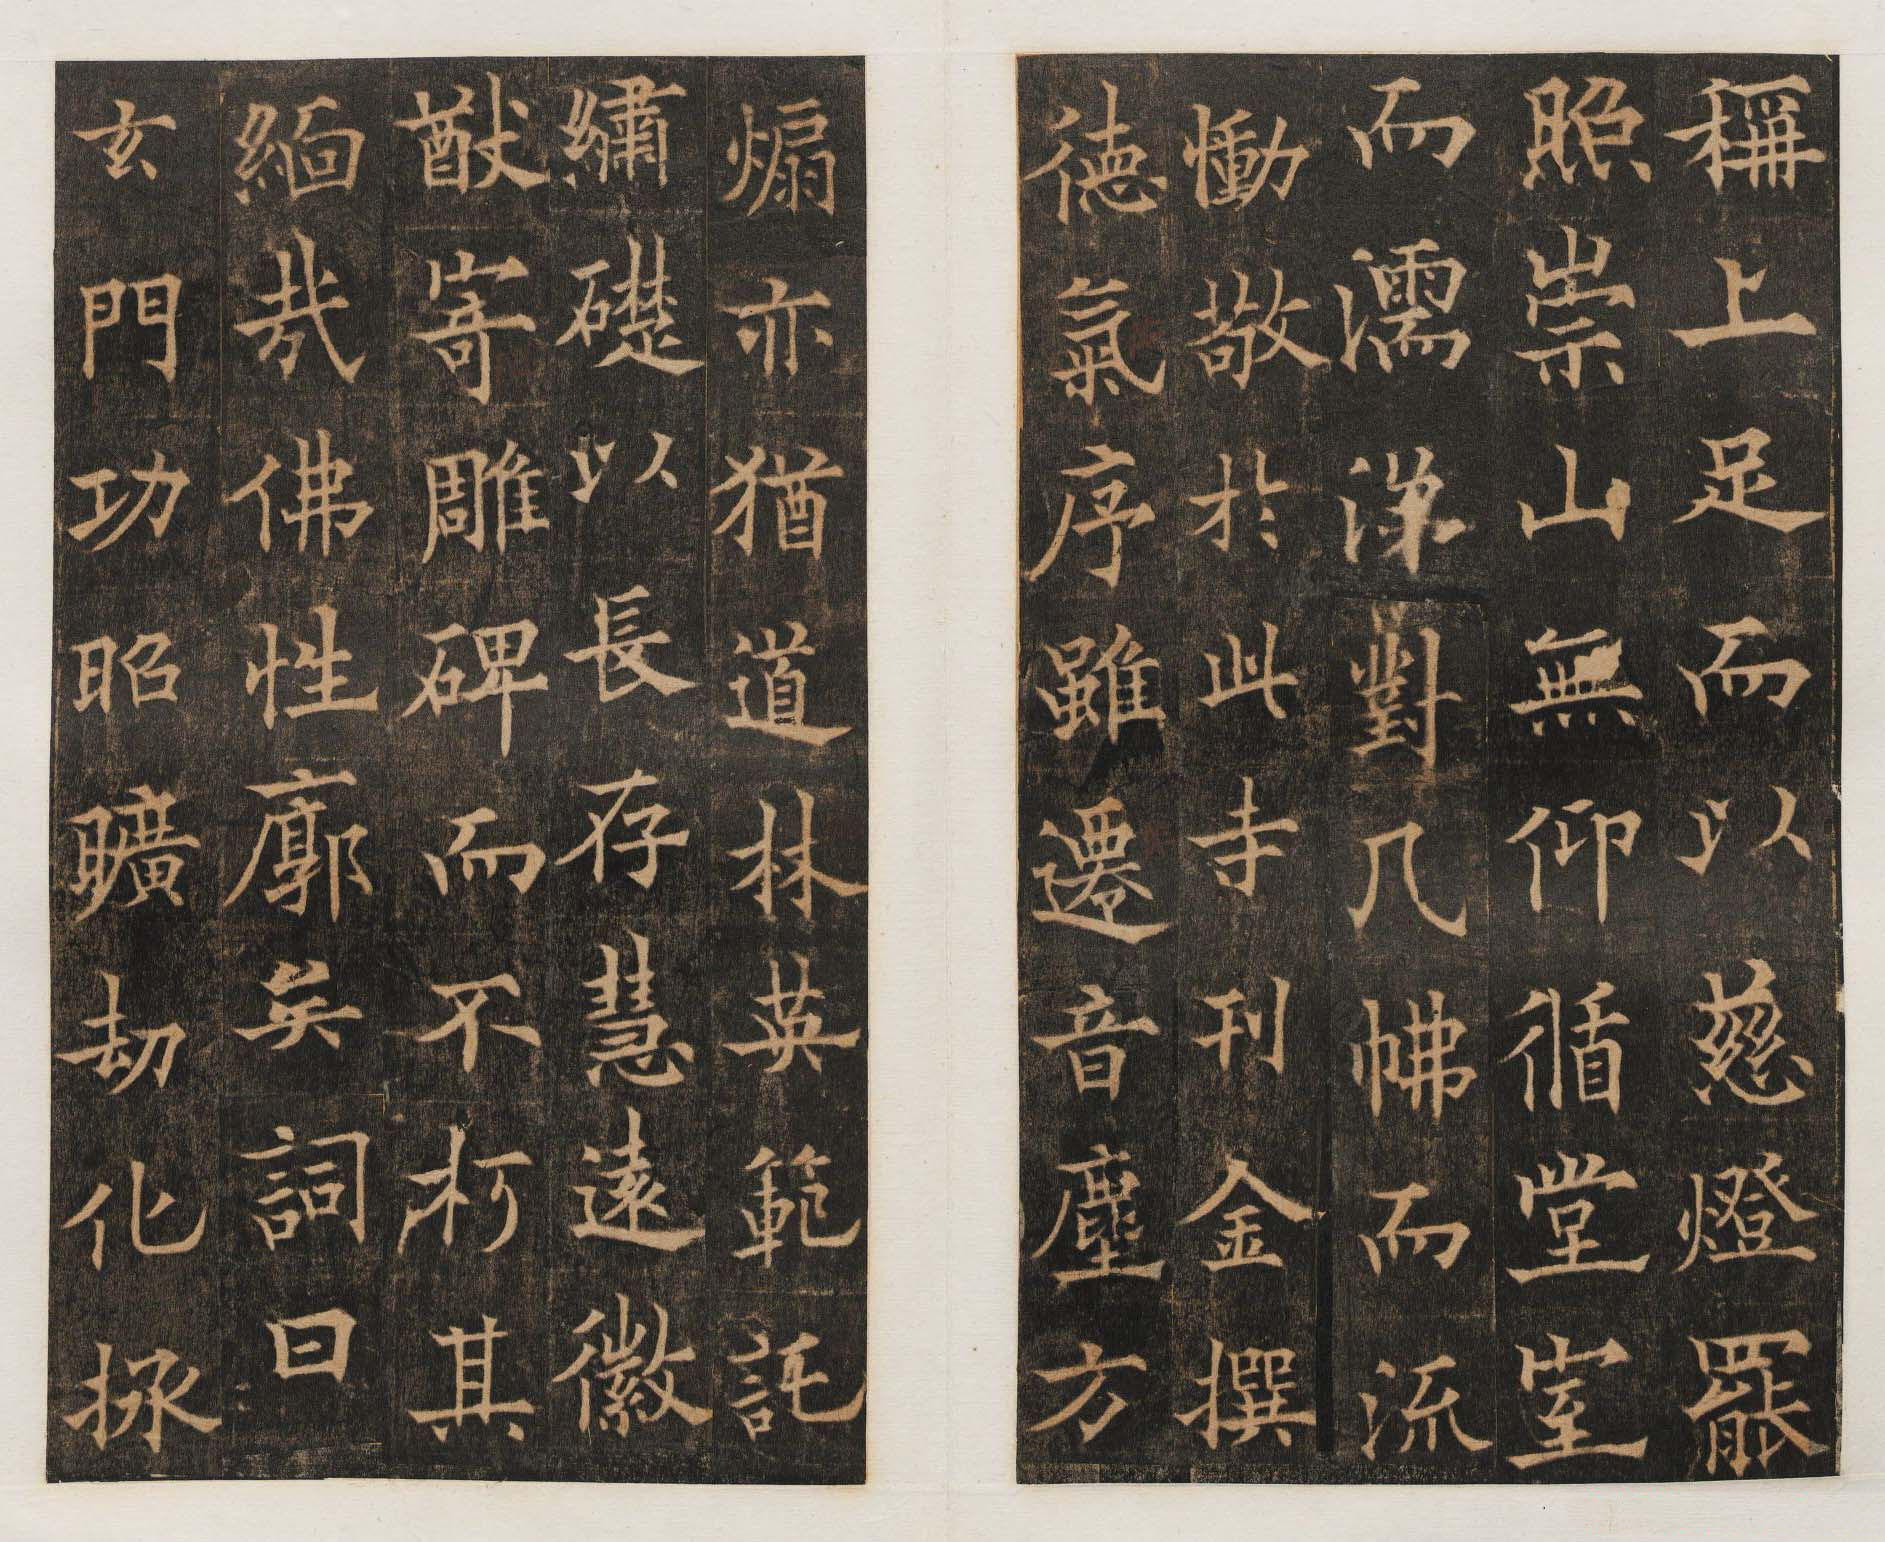 稱上足而以慈燈罷
照崇山無仰循堂室
而濡涕對几怫而流
慟敬於此寺刊金撰
德氣序雖遷音塵方
煽亦猶道林英範託
繡礎以長存慧遠徽
猷寄雕碑而不朽其
緬哉佛性廓矣詞曰
玄門功昭曠劫化拯